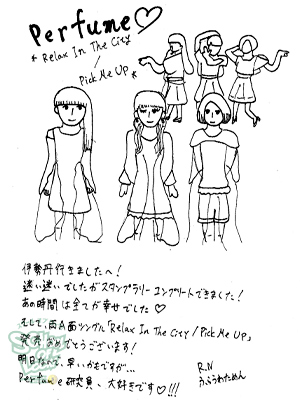 Perfume♡
* Relax In The City
/
Pick Me UP *
伊勢丹行きましたヘ!
迷い迷いでしたがスタンプラリーコンプリートできました!
あの時間は全てが幸せでした♡
そして、両A面シングル「Relax In The City / Pick Me UP」
発売おめでとうございます!
明日なんで、早いかもですが…
Perfume研究員、大好きです♡!!!
R.N
ふらうわためん